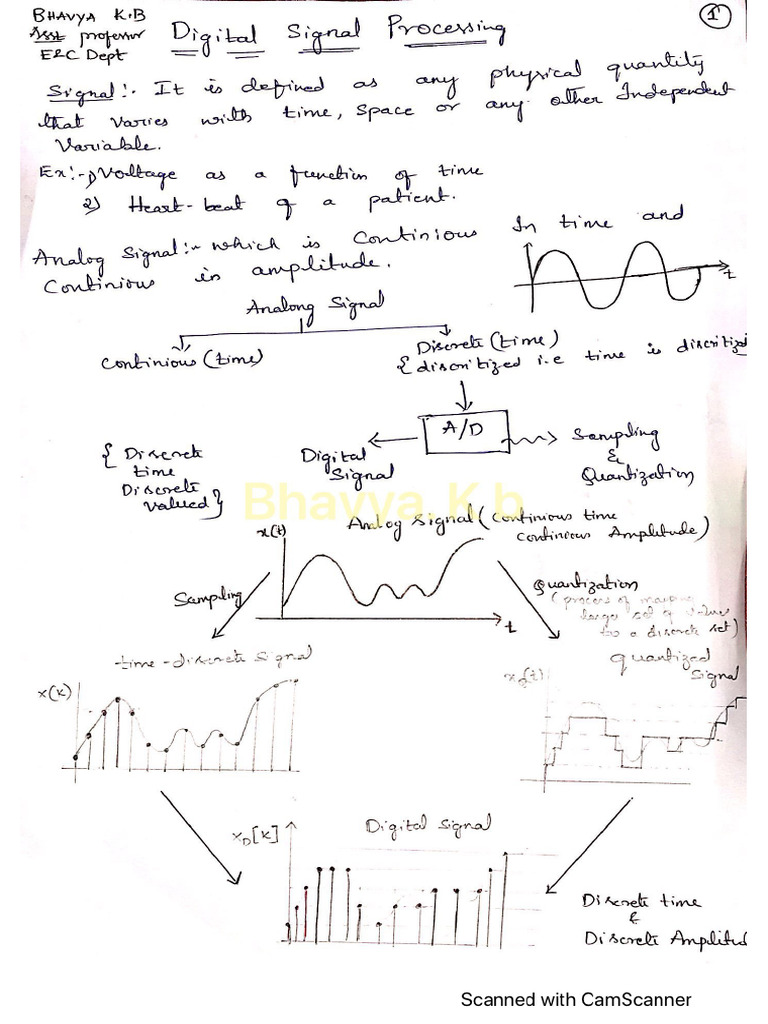 BHAVYA K.B
Asst professor
E&C Dept
Digital Signal Processing
1
Signal:- It is defined as any physical quantity
that varies with time, space or any other Independent
Variable.
Ex:-1) Voltage as a function of time
2) Heart-beat of a patient.
Analog Signal:- which is Continious In time and
Continious in amplitude.
t
Analong Signal
Continious (time)
Discrete (time)
{ discritized i.e time is discritized
A/D
Sampling
&
Quantization
Digital
Signal
{ Discrete
time
Discrete
valued }
Bhavya.K.b
x(t)
Analog signal (continious time
continious Amplitude)
t
Sampling
Quantization
(process of mapping
large set of values
to a discrete set)
time-discrete signal
x(k)
quantized
signal
xQ(t)
Digital signal
xD[k]
Discrete time
&
Discrete Amplitud
Scanned with CamScanner